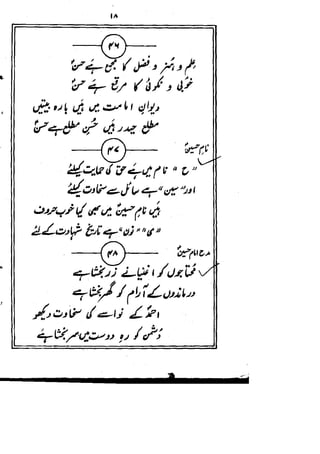 ۱۸
۴۶
علم و ہنر و فضل کا مجمع ہے حسنؑ
خوبی و نکوئی کا مرقع ہے حسنؑ
دیوانِ امامت میں ہیں بارہ بیتیں
مطلع حیدر ہیں حسنِ مطلع ہے حسنؑ
۴۷
نام حسینؑ
"ح" نام میں ہے حق کی حمایت کیلئے
اور "سین" ہے سائل سے سخاوت کیلئے
ہیں نامِ حسینؑ میں بھی کیا خوب حروف
"ی" "نون" ہے تاریخ شہادت کے لئے
۴۸
مدح امام حسینؑ
محتاجوں کو اغنیا نے زر بخشا ہے
درماندوں کے آرام کو گھر بخشا ہے
احمدؐ کے نواسے کی سخاوت دیکھو
دشمن کو رہ دوست میں سر بخشا ہے